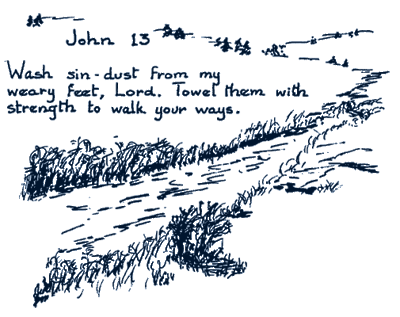 John 13
Wash sin-dust from my
weary feet, Lord. Towel them with
strength to walk your ways.